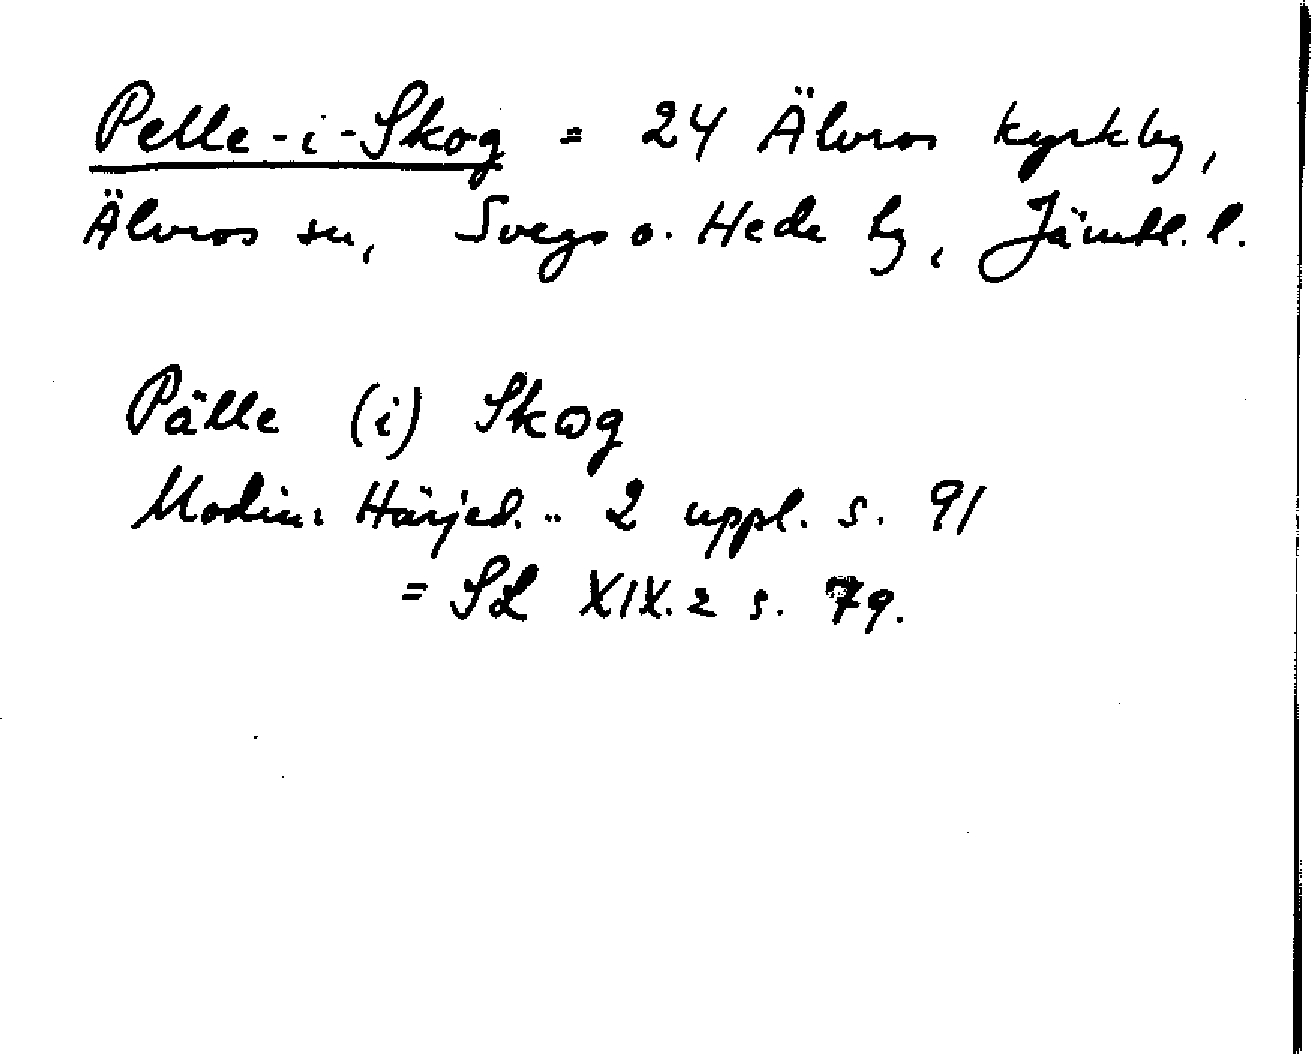 Pelle-i-Skog = 24 Älvros kyrkby,
Älvros sn, Svegs o. Hede tg, Jämtl. l.
Pälle (i) Skog
Modin: Härjed. .. 2 uppl. s. 91
= SL XIX.2 s. 79.